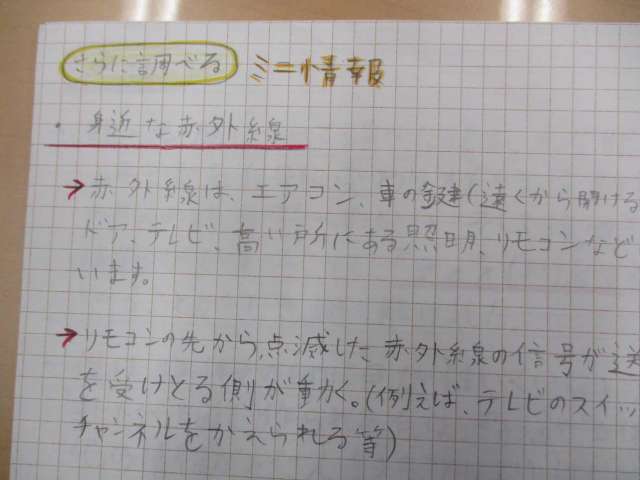 さらに調べる ミニ情報
・身近な赤外線
→赤外線は、エアコン、車の鍵(遠くから開ける
ドア、テレビ、高い所にある照明、リモコンなど
います。
→リモコンの先から、点滅した赤外線の信号が送
を受けとる側が動く。(例えば、テレビのスイッ
チャンネルをかえられる等)